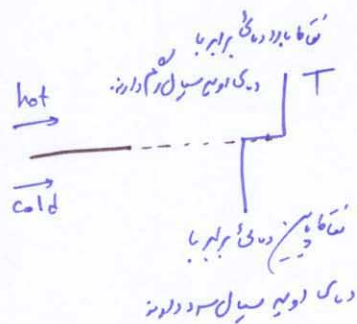 نقاط بالا دمائی برابر با
دمای اولیه سیال گرم دارند.
hot
T
cold
نقاط پایین دمائی برابر با
دمای اولیه سیال سرد دارند